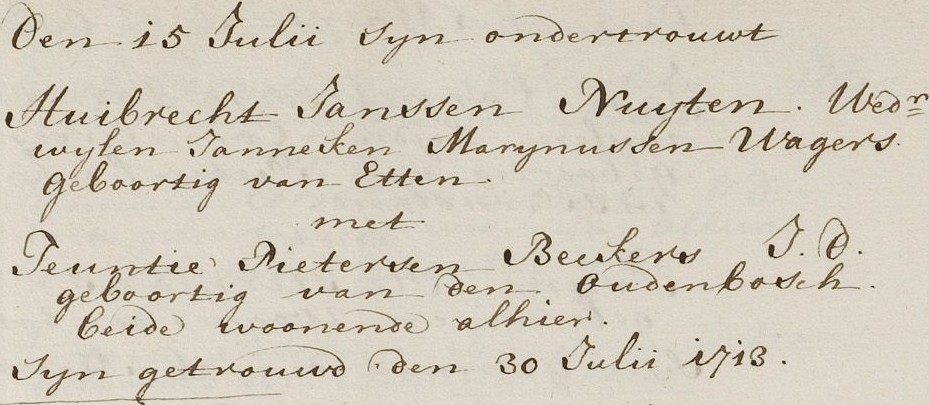 Den 15 Julii syn ondertrouwt
Huibrecht Janssen Nuyten. Wedr
wylen Janneken Marynussen Wagers.
geboortig van Etten.
met
Teuntie Pietersen Beckers J. d.
geboortig van den Oudenbosch.
beide woonende alhier.
Syn getrouwd den 30 Julii 1713.